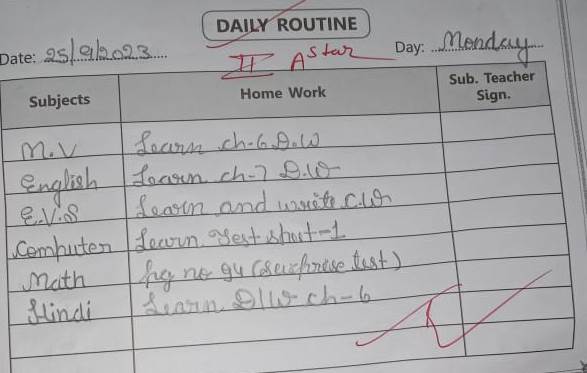 DAILY ROUTINE
Date: 25/9/2023 Day: Monday
II A Star
Subjects Home Work Sub. Teacher Sign.
M.V Learn ch-6 D.W
English Learn ch-7 D.W
E.V.S Learn and write C.W
Computer Learn Test sheet-1
Math Pg no 94 (Surprise test)
Hindi Learn D/W ch-6